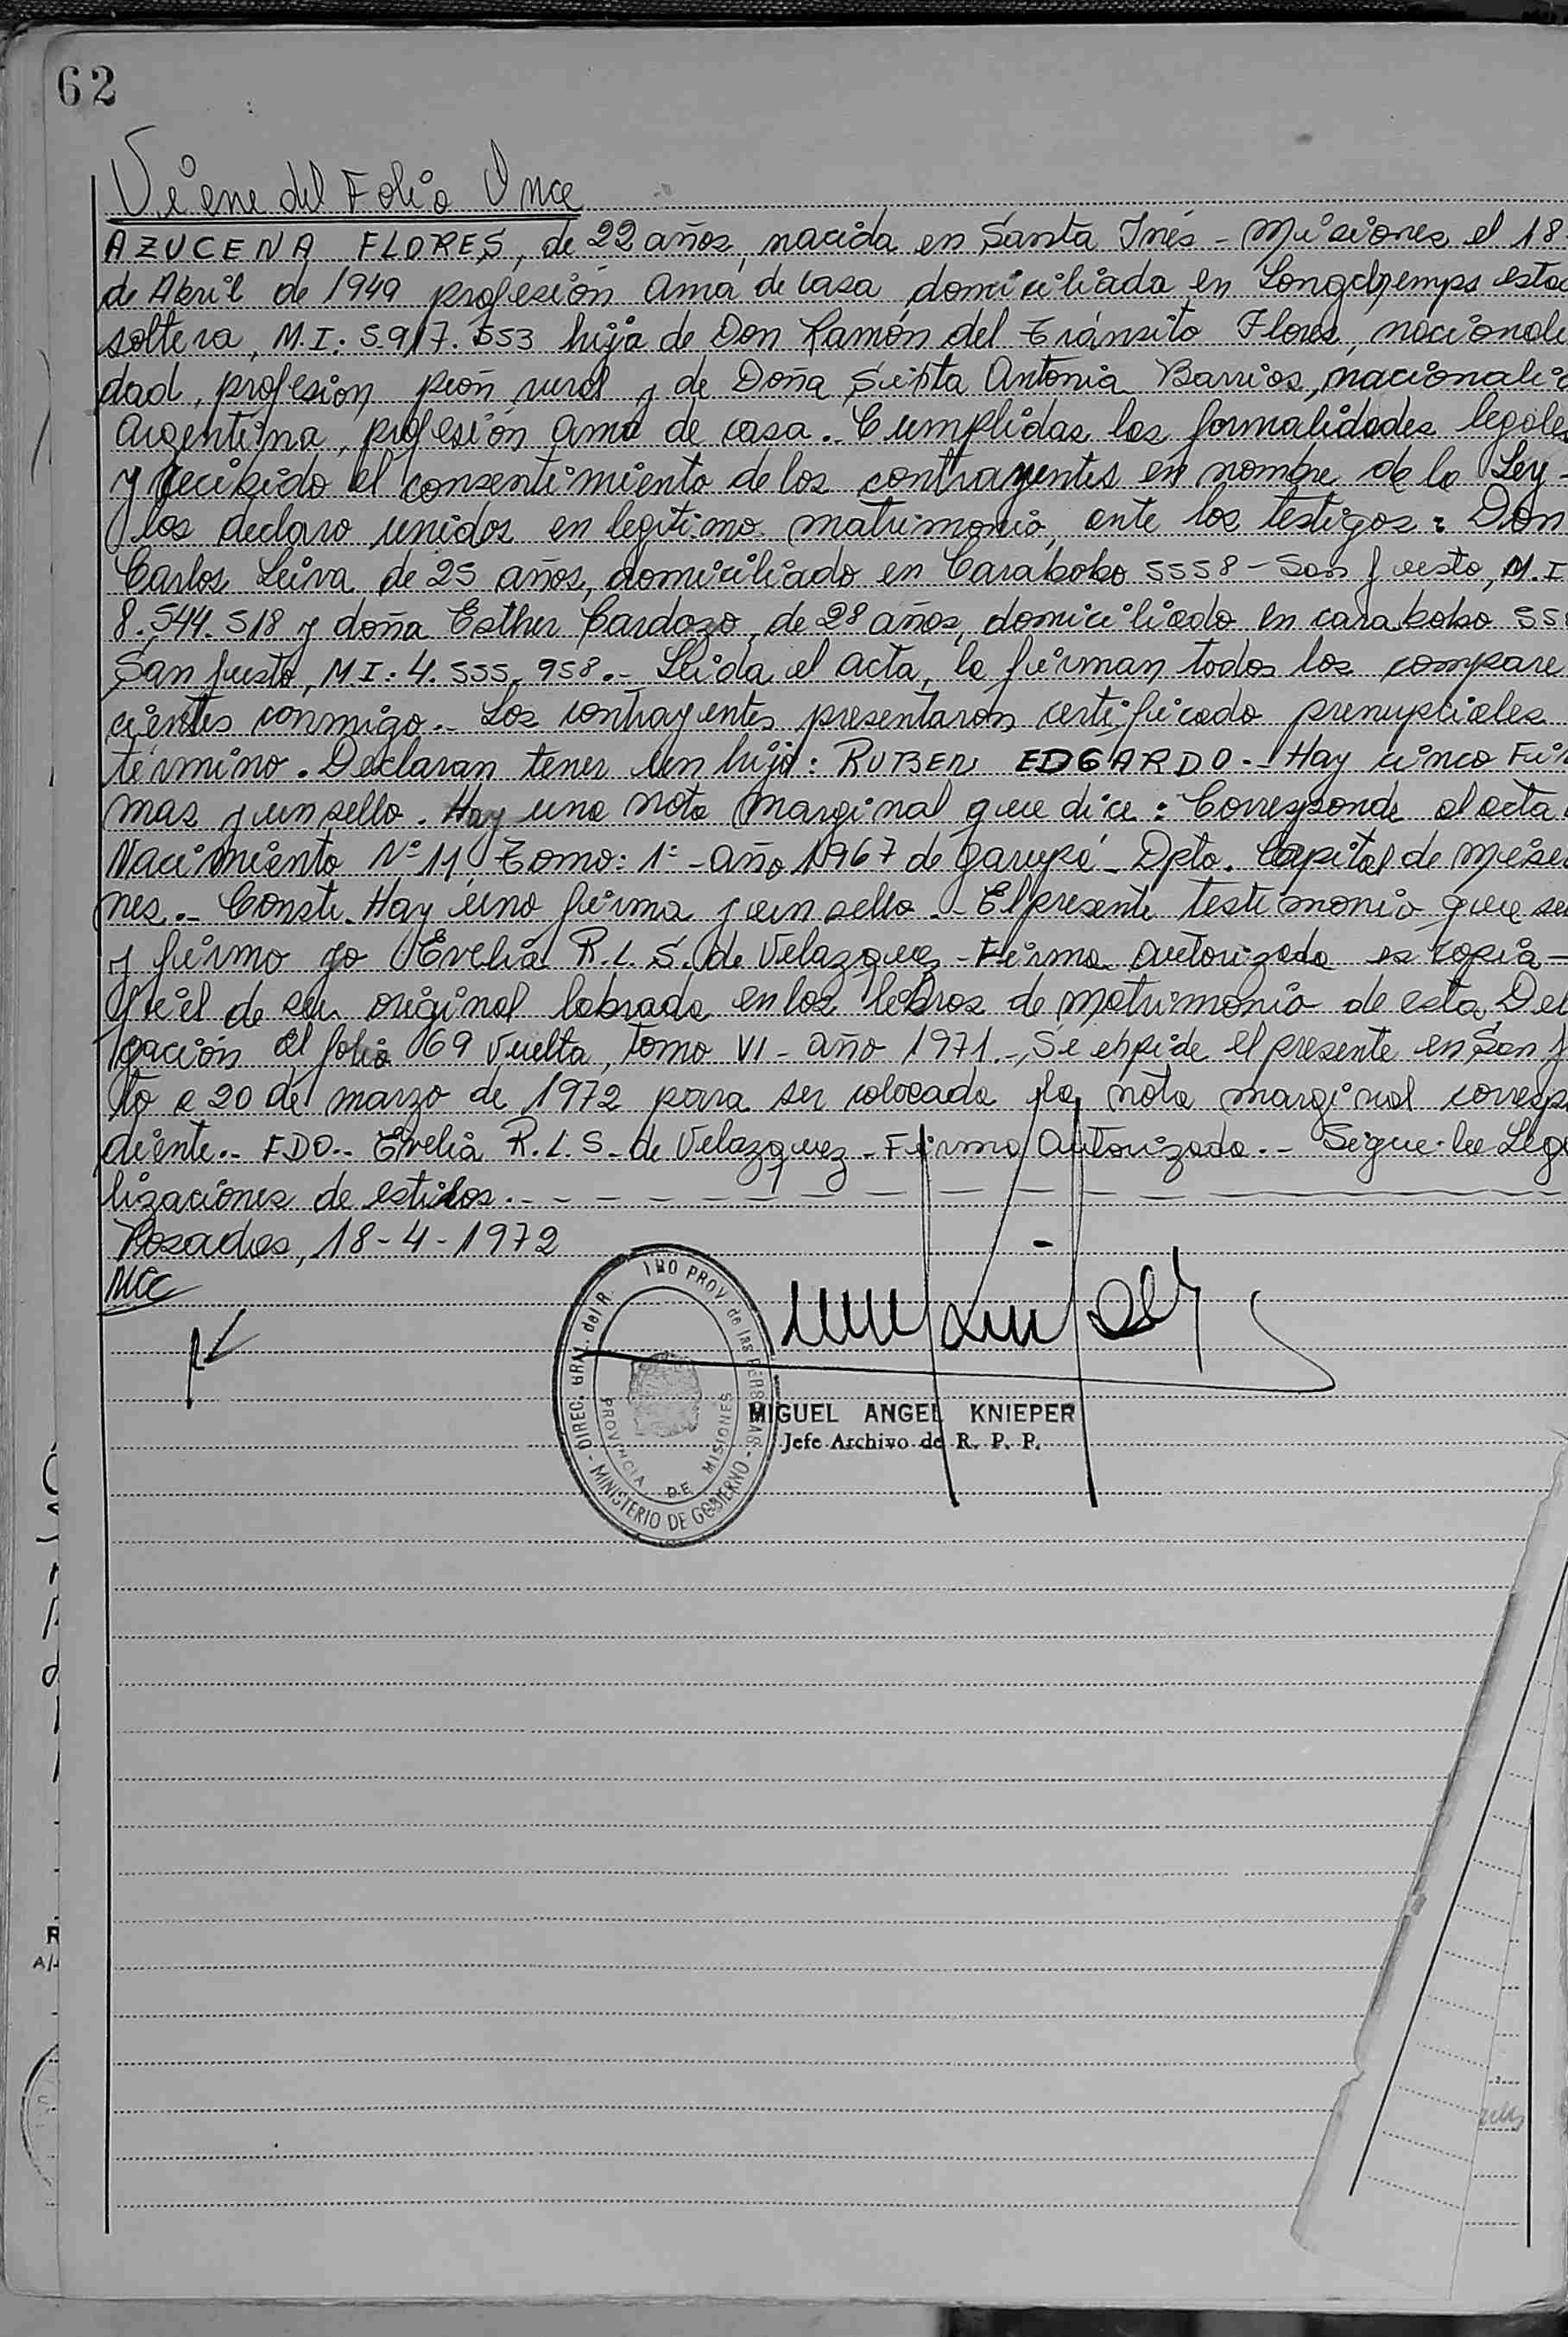 62
Viene del Folio Once
AZUCENA FLORES, de 22 años, nacida en Santa Inés - Misiones el 18-
de Abril de 1949 profesión Ama de casa domiciliada en Longchemps estad
soltera, M.I: 5.917.553 hija de Don Ramón del Tránsito Flores, nacionali
dad, profesion peón rural y de Doña Sixta Antonia Barrios, nacionalid
Argentina, profesión ama de casa.- Cumplidas las formalidades legales
y recibido el consentimiento de los contrayentes en nombre de la Ley -
los declaro unidos en legitimo matrimonio, ante los testigos: Don
Carlos Leiva de 25 años, domiciliado en Carabobo 5558 - San Justo, M.I
8.544.518 y doña Esther Cardozo, de 28 años, domiciliado en carabobo 555
San Justo, M.I: 4.555.958.- Leida el acta, la firman todos los compare
cientes conmigo.- Los contrayentes presentaron certificado prenupciales
término. Declaran tener un hijo: RUBEN EDGARDO.- Hay cinco Fir
mas y un sello. Hay una nota marginal que dice: Corresponde al acta
Nacimiento Nº 11, Tomo: 1º - año 1967 de Garupá - Dpto. Capital de Misio
nes.- Conste. Hay una firma y un sello.- El presente testimonio que se
y firmo yo Evelia R.L.S. de Velazquez - Firma autorizada es copia -
fiel de su original labrada en los libros de matrimonio de esta Del
gación al folio 69 Vuelta, Tomo VI - año 1971.- Se expide el presente en San J
to a 20 de marzo de 1972 para ser colocada la nota marginal corresp
diente.- FDO.- Evelia R.L.S. de Velazquez - Firma Autorizada.- Sigue las Lega
lizaciones de estilos.-
Posadas, 18-4-1972
MCC
DIREC. GRAL. del R. PROV. de las PERSONAS - MINISTERIO DE GOBIERNO -
PROVINCIA DE MISIONES
MIGUEL ANGEL KNIEPER
Jefe Archivo de R. P. P.